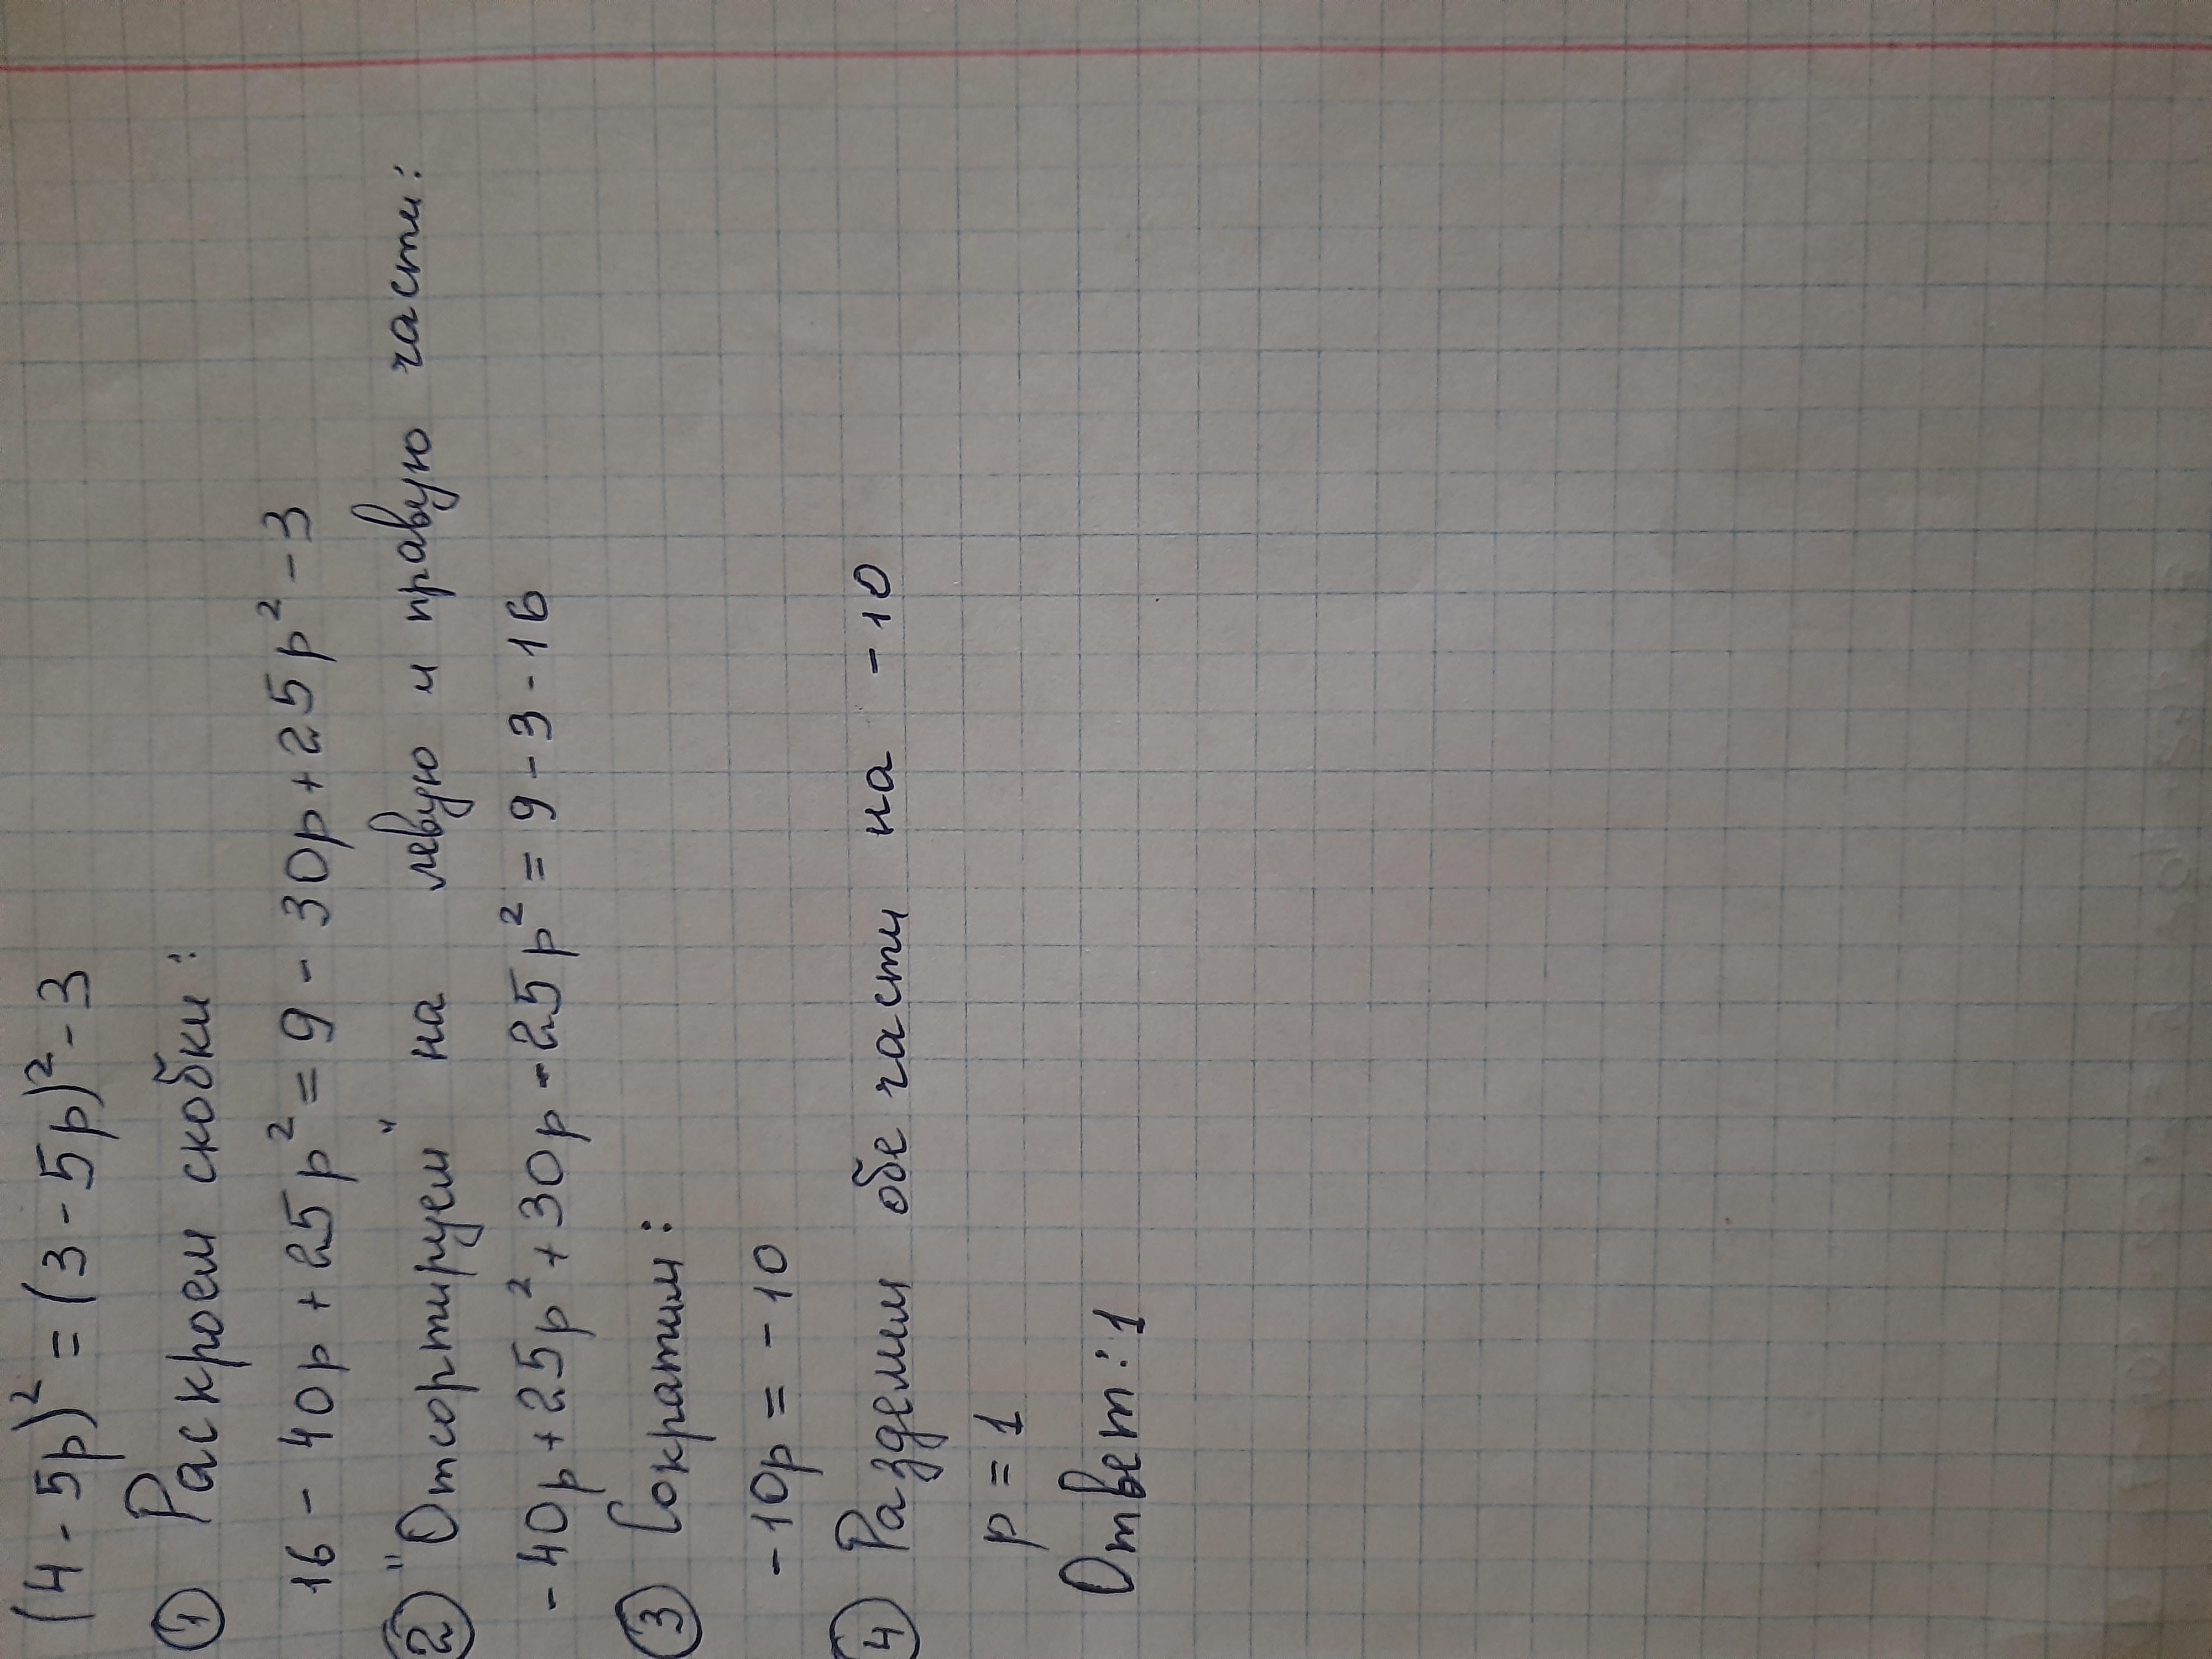 (4 - 5p)² = (3 - 5p)² - 3
① Раскроем скобки:
16 - 40p + 25p² = 9 - 30p + 25p² - 3
② "Отсортируем" на левую и правую части:
- 40p + 25p² + 30p - 25p² = 9 - 3 - 16
③ Сократим:
- 10p = - 10
④ Разделим обе части на - 10
p = 1
Ответ: 1